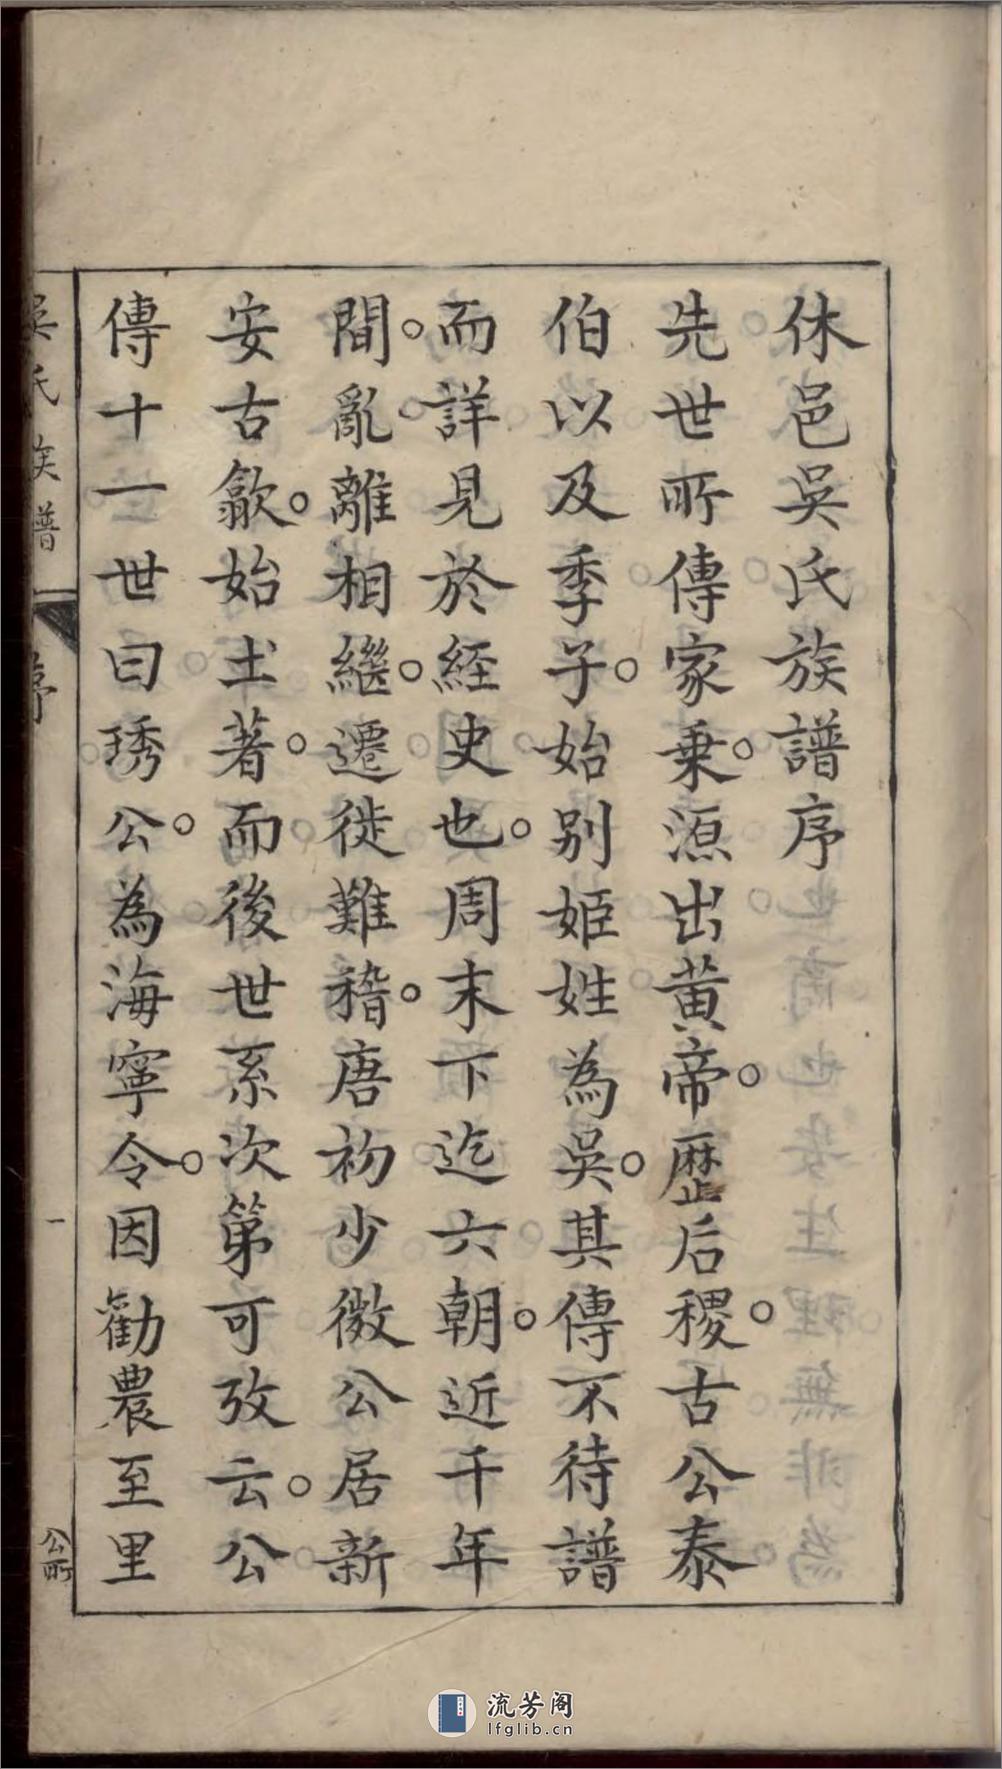 休邑吳氏族譜序
先世所傳家乗。源出黄帝。歷后稷。古公泰
伯以及季子。始别姬姓為吳。其傳不待譜
而詳見於經史也。周末下迄六朝。近千年
間。亂離相繼。遷徙難稽。唐初少微公居新
安古歙。始土著。而後世系次第可攷云。公
傳十一世曰琇公。為海寧令。因勸農至里
吳氏族譜 序 一 公所
流芳阁
lfglib.cn